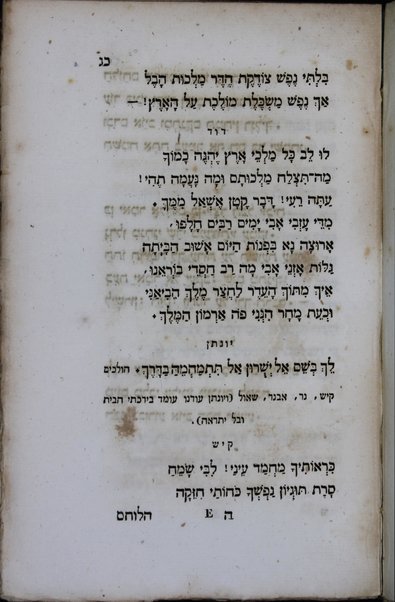 כג
בִּלְתִּי נֶפֶשׁ צוֹדֶקֶת הֶדֶר מַלְכוּת הָבֶל
אַךְ נֶפֶשׁ מַשְׂכֶּלֶת מוֹלֶכֶת עַל הָאָרֶץ! —
דוד
לוּ לֵב כָּל מַלְכֵי אֶרֶץ יֶהְגֶּה כָּמוֹךָ
מַה־תִּצְלַח מַלְכוּתָם וּמַה נָּעֲמָה תְהִי!
עַתָּה רֵעִי! דָּבָר קָטָן אֶשְׁאַל מִמֶּךָּ •
מִדֵּי עָזְבִי אָבִי יָמִים רַבִּים חָלָפוּ,
אָרוּצָה נָא בִּפְנוֹת הַיּוֹם אָשׁוּב הַבָּיְתָה
גַּלּוֹת אָזְנֵי אָבִי מָה רַב חַסְדֵי בוֹרְאֵנוּ,
אֵיךְ מִתּוֹךְ הָעֵדֶר לַחֲצַר מֶלֶךְ הֱבִיאַנִי
וּכְעֵת מָחָר הִנְנִי פֹה אַרְמוֹן הַמֶּלֶךְ •
יונתן
לֵךְ בְּשֵׁם אֵל יְשֻׁרוּן אַל תִּתְמַהְמֵהַּ בַּדָּרֶךְ • הולכים
קיש, נר, אבנר, שאול (ויונתן עודנו עומד בירכתי הבית
ובל יתראה).
קיש
כִּרְאוֹתִיךָ מַחְמַד עֵינַי! לִבִּי שָׂמֵחַ
סָרַת תּוּגְיוֹן נַפְשְׁךָ כֹּחוֹתַי חִזֵּקָה
ה E הלוחם